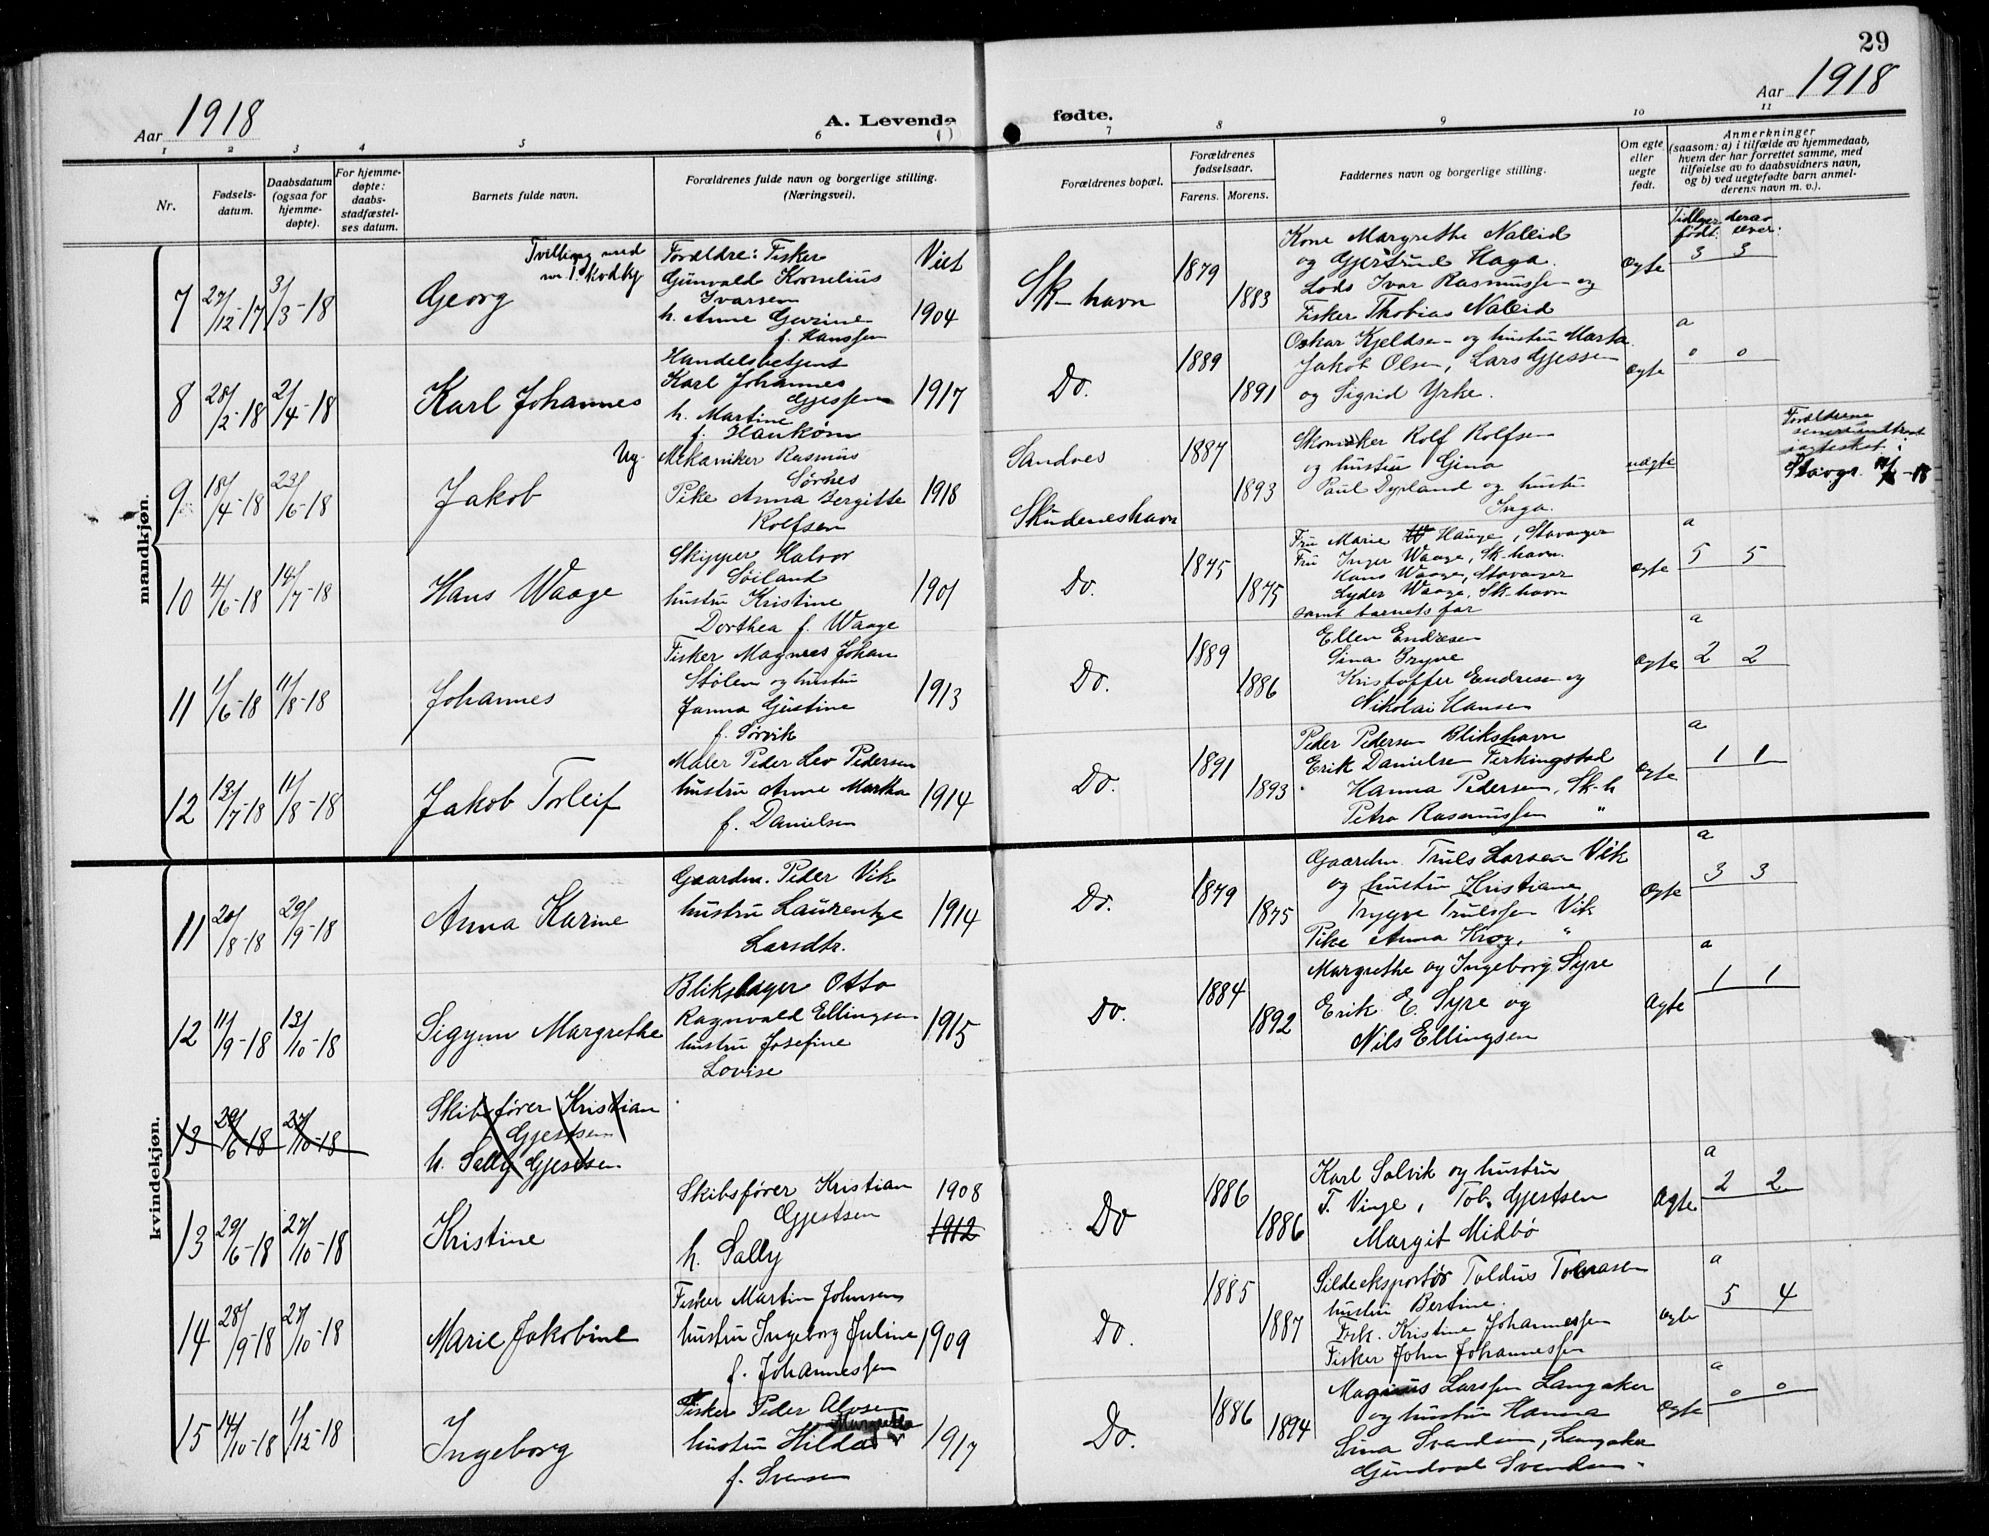 29
Aar 1918
A. Levende fødte.
Aar 1918
1 2 3 4 5 6 7 8 9 10 11
Nr.
Fødsels-
datum.
Daabsdatum
(ogsaa for
hjemme-
døpte).
For hjemme-
døpte:
daabs-
stadfæstel-
ses datum.
Barnets fulde navn.
Forældrenes fulde navn og borgerlige stilling.
(Næringsvei).
Forældrenes bopæl.
Forældrenes
fødselsaar.
Farens. Morens.
Faddernes navn og borgerlige stilling.
Om egte
eller
uegte
født.
Anmerkninger
(saasom: a) i tilfælde av hjemmedaab,
hvem der har forrettet samme, med
tilføielse av to daabsvidners navn,
og b) ved uegtefødte barn anmel-
derens navn m. v.).
mandkjøn.
7 27/12-17 3/3-18
Tvilling med
nr. 1 kvdkj
Georg
Forældre: Fisker
Gunvald Kornelius
Ivarsen
h. Anne Gurine
f. Hanssen
Viet
1904
Sk-havn
1879
1883
Kone Margrethe Naleid
og Gjertrud Haga.
Lods Ivar Rasmussen og
Fisker Thobias Naleid
Ægte
Tidligere født: derav lever:
3 3
8 28/2-18 2/4-18
Karl Johannes
Handelsbetjent
Karl Johannes
Gjessen
h. Martine
f. Haukom
1917
Do.
1889
1891
Oskar Kjeldsen og hustru Marta
Jakob Olsen, Lars Gjessen
og Sigrid Yrke.
Ægte
a
0 0
9 18/4-18 23/6-18
Ug.
Jakob
Mekaniker Rasmus
Sørnes
Pike Anna Bergitte
Rolfsen
1918
Sandnes
Skudeneshavn
1887
1893
Skomaker Rolf Rolfsen
og hustru Gina
Paul Dypland og hustru
Inga.
uægte
Forældrene
senere indtraadt
i egteskab i
Stavgr.
10 4/6-18 14/7-18
Hans Waage
Skipper Halvor
Søiland
hustru Kristine
Dorthea f. Waage
1901
Do.
1875
1875
Fru Marie Hauge, Stavanger
Fru Inger Waage, Sk-havn.
Hans Waage, Stavanger
Lyder Waage, Sk-havn
samt barnets far
Ægte
a
5 5
11 1/6-18 11/8-18
Johannes
Fisker Magnus Johan
Stølen og hustru
Janna Gustine
f. Sørvik
1913
Do.
1889
1886
Ellen Endresen
Sina Bryne
Kristoffer Endresen og
Nikolai Hansen
Ægte
a
2 2
12 13/7-18 11/8-18
Jakob Torleif
Maler Peder Leo Pedersen
hustru Anne Martha
f. Danielsen
1914
Do.
1891
1893
Peder Pedersen Blikshavn
Erik Danielsen Ferkingstad
Hanna Pedersen, Sk-h
Petra Rasmussen "
Ægte
a
1 1
kvindekjøn.
11 20/8-18 29/9-18
Anna Karine
Gaardm. Peder Vik
hustru Laurentze
Larsdtr.
1914
Do.
1879
1875
Gaardm. Truls Larsen Vik
og hustru Kristiane
Trygve Trulssen Vik
Pike Anna Krog, "
Ægte
a
3 3
12 11/9-18 13/10-18
Sigynn Margrethe
Blikslager Otto
Ragnvald Ellingsen
hustru Josefine
Lovise
1915
Do.
1884
1892
Margrethe og Ingeborg Syre
Erik E. Syre og
Nils Ellingsen
Ægte
a
1 1
13 29/6-18 27/10-18
Skibsfører Kristian
Gjestsen
h. Sally Gjestsen
13 29/6-18 27/10-18
Kristine
Skibsfører Kristian
Gjestsen
h. Sally
1908
1912
Do
1886
1886
Karl Salvik og hustru
T. Vinje, Tob. Gjestsen
Margit Midbø
Ægte
a
2 2
14 28/9-18 27/10-18
Marie Jakobine
Fisker Martin Johnsen
hustru Ingeborg Juline
f. Johannessen
1909
Do.
1885
1887
Sildeeksportør Toldus
hustru Bertine.
Frk. Kristine Johannessen
Fisker John Johannessen
Ægte
a
5 4
15 14/10-18 1/12-18
Ingeborg
Fisker Peder Alvsen
hustru Hilda Margretha
f. Svensen
1917
Do.
1886
1894
Magnus Larssen Langaker
og hustru Hanna
Sina Svendsen, Langaker
Gundval Svendsen.
Ægte
a
0 0